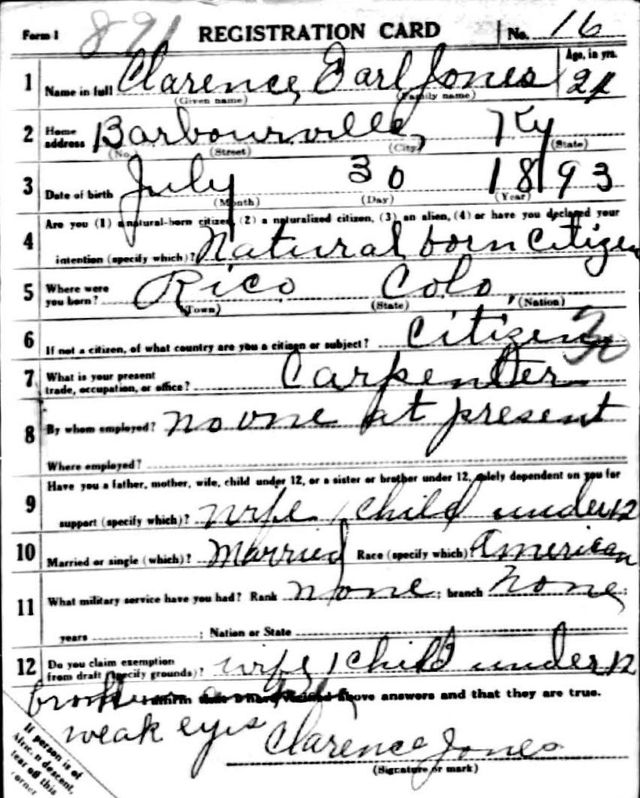 Form 1 891 REGISTRATION CARD No. 16
1 Name in full Clarence Earl Jones Age, in yrs.
(Given name) (Family name)
2 Home address Barbourville, Ky
(No.) (Street) (City) (State)
3 Date of birth July 30 1893
(Month) (Day) (Year)
4 Are you (1) a natural-born citizen, (2) a naturalized citizen, (3) an alien, (4) or have you declared your
intention (specify which)? Natural born citizen
5 Where were you born? Rico Colo,
(Town) (State) (Nation)
6 If not a citizen, of what country are you a citizen or subject? Citizen
7 What is your present trade, occupation, or office? Carpenter
8 By whom employed? no one at present
Where employed?
9 Have you a father, mother, wife, child under 12, or a sister or brother under 12, solely dependent on you for
support (specify which)? wife, child under 12
10 Married or single (which)? Married Race (specify which) American
11 What military service have you had? Rank none ; branch None ;
years ; Nation or State
12 Do you claim exemption from draft (specify grounds)? wife, child under 12
above answers and that they are true.
weak eyes
Clarence Jones
(Signature or mark)
If person is of
African descent,
tear off this
corner